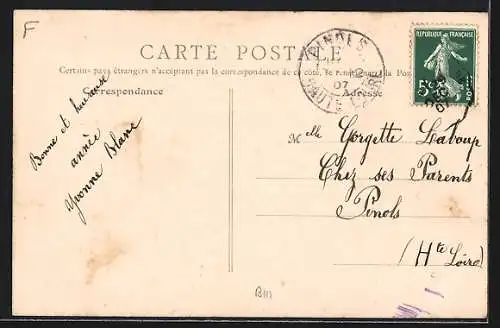 F
CARTE POSTALE
Certains pays étrangers n'acceptant pas la correspondance de ce côté, se renseigner à la Pos
Correspondance
Adresse
PINOLS
07
HAUTE LOIRE
REPUBLIQUE FRANÇAISE
5c
POSTES
Bonne et heureuse
année
Yvonne Blanc
Melle Georgette Laloup
Chez ses Parents
Pinols
(Hte Loire)